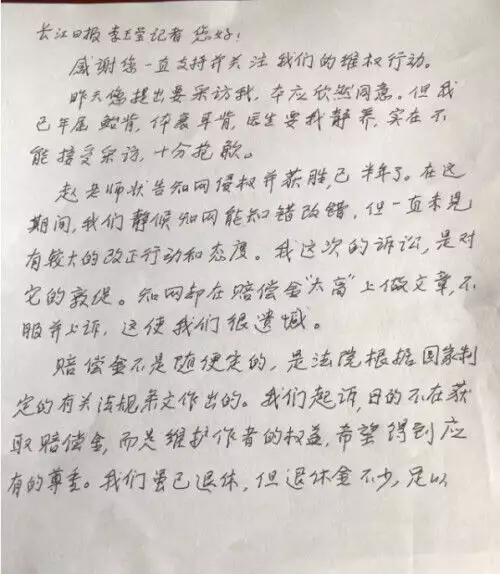 长江日报 李玉莹记者 您好！
感谢您一直支持并关注我们的维权行动。
昨天您提出要采访我，本应欣然同意。但我
已年届鲐背，体衰耳背，医生要我静养，实在不
能接受采访，十分抱歉。
赵老师状告知网侵权并获胜，已半年了。在这
期间，我们静候知网能知错改错，但一直未见
有较大的改正行动和态度。我这次的诉讼，是对
它的敦促。知网却在赔偿金“太高”上做文章，不
服并上诉，这使我们很遗憾。
赔偿金不是随便定的，是法院根据国家制
定的有关法规条文作出的。我们起诉，目的不在获
取赔偿金，而是维护作者的权益，希望得到应
有的尊重。我们虽已退休，但退休金不少，足以